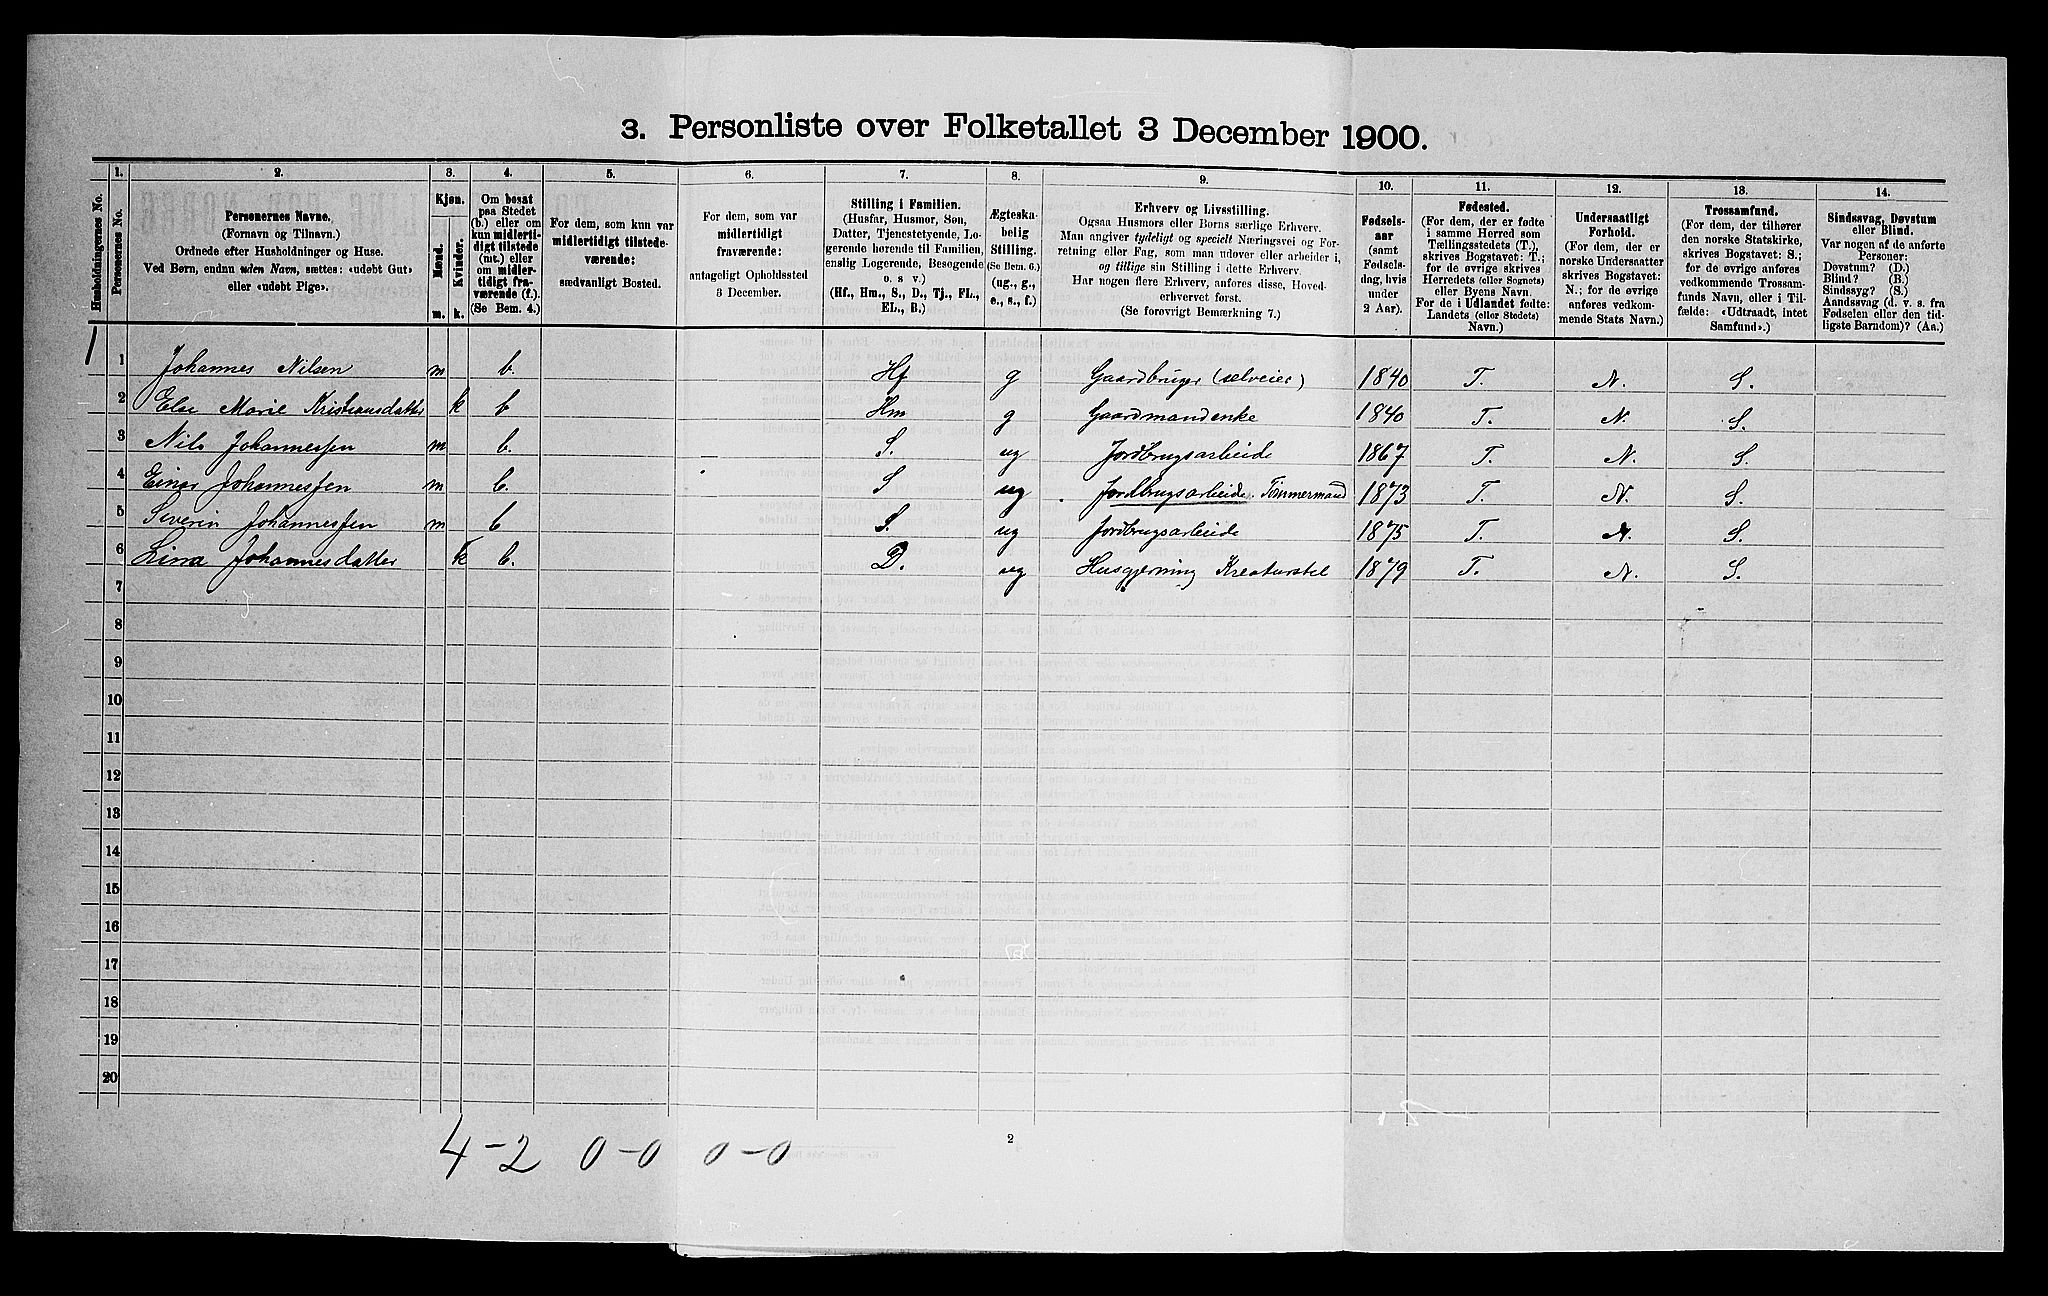 3. Personliste over Folketallet 3 December 1900.
Husholdningernes No.
1. Personernes No.
2. Personernes Navne. (Fornavn og Tilnavn.) Ordnede efter Husholdninger og Huse. Ved Børn, endnu uden Navn, sættes: «udøbt Gut» eller «udøbt Pige».
3. Kjøn. Mænd. m. Kvinder. k.
4. Om bosat paa Stedet (b.) eller om kun midlertidigt tilstede (mt.) eller om midlertidigt fraværende (f.). (Se Bem. 4.)
5. For dem, som kun var midlertidigt tilstedeværende: sædvanligt Bosted.
6. For dem, som var midlertidigt fraværende: antageligt Opholdssted 3 December.
7. Stilling i Familien. (Husfar, Husmor, Søn, Datter, Tjenestetyende, Logerende hørende til Familien, enslig Logerende, Besøgende o. s v.) (Hf., Hm., S., D., Tj., FL., EL., B.)
8. Ægteskabelig Stilling. (Se Bem. 6.) (ug., g., e., s., f.)
9. Erhverv og Livsstilling. Ogsaa Husmors eller Børns særlige Erhverv. Man angiver tydeligt og specielt Næringsvei og Forretning eller Fag, som man udøver eller arbeider i, og tillige sin Stilling i dette Erhverv. Har nogen flere Erhverv, anføres disse, Hovederhvervet først. (Se forøvrigt Bemærkning 7.)
10. Fødselsaar (samt Fødselsdag, hvis under 2 Aar).
11. Fødested. (For dem, der er fødte i samme Herred som Tællingsstedets (T.), skrives Bogstavet: T.; for de øvrige skrives Herredets (eller Sognets) eller Byens Navn. For de i Udlandet fødte: Landets (eller Stedets) Navn.)
12. Undersaatligt Forhold. (For dem, der er norske Undersaatter skrives Bogstavet: N.; for de øvrige anføres vedkommende Stats Navn.)
13. Trossamfund. (For dem, der tilhører den norske Statskirke, skrives Bogstavet: S.; for de øvrige anføres vedkommende Trossamfunds Navn, eller i Tilfælde: «Udtraadt, intet Samfund».)
14. Sindssvag, Døvstum eller Blind. Var nogen af de anførte Personer: Døvstum? (D.) Blind? (B.) Sindssyg? (S.) Aandssvag (d. v. s. fra Fødselen eller den tidligste Barndom)? (Aa.)
1 1 Johannes Nilsen m b. Hf g Gaardbruger (selveier) 1840 T. N. S.
2 Else Marie Kristiansdatter k b Hm g Gaardmandenke 1840 T. N. S.
3 Nils Johannessen m b. S. ug Jordbrugsarbeide 1867 T. N. S.
4 Einar Johannessen m b. S ug Jordbrugsarbeide. Tømmermand 1873 T. N. S.
5 Severin Johannessen m b S. ug Jordbrugsarbeide 1875 T. N. S.
6 Lina Johannesdatter k b. D. ug Husgjerning Kreaturstel 1879 T. N. S.
7
8
9
10
11
12
13
14
15
16
17
18
19
20
4-2 0-0 0-0
2